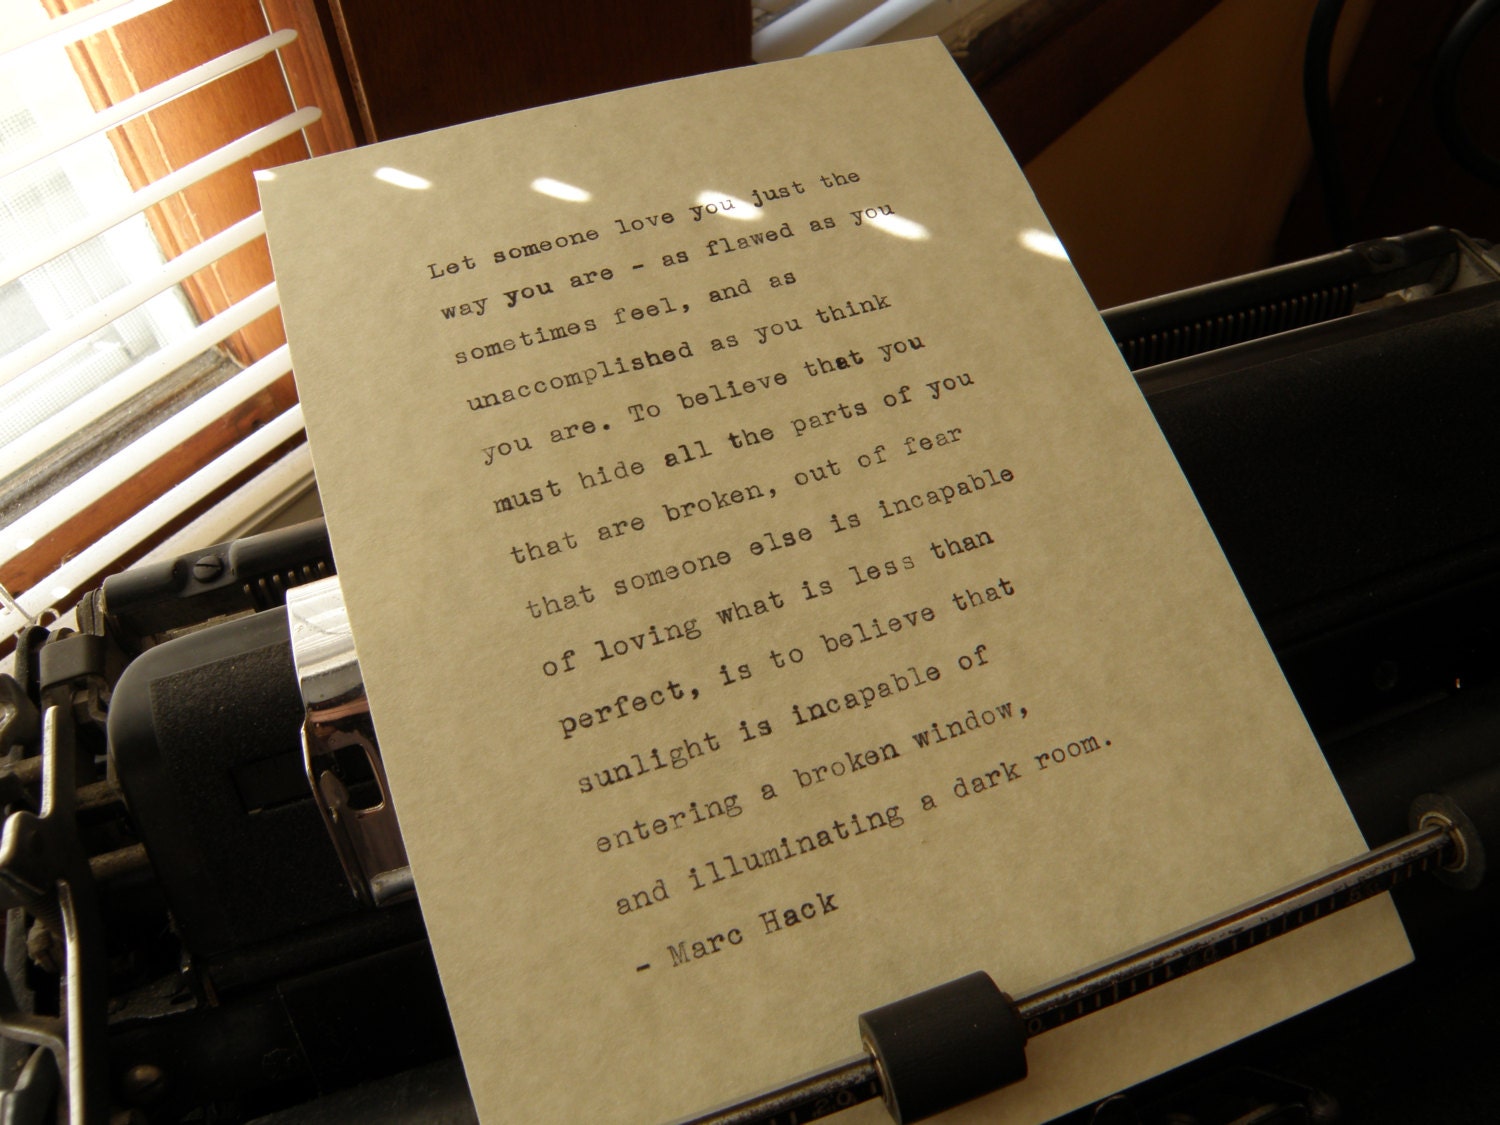 Let someone love you just the
way you are - as flawed as you
sometimes feel, and as
unaccomplished as you think
you are. To believe that you
must hide all the parts of you
that are broken, out of fear
that someone else is incapable
of loving what is less than
perfect, is to believe that
sunlight is incapable of
entering a broken window,
and illuminating a dark room.
- Marc Hack
20